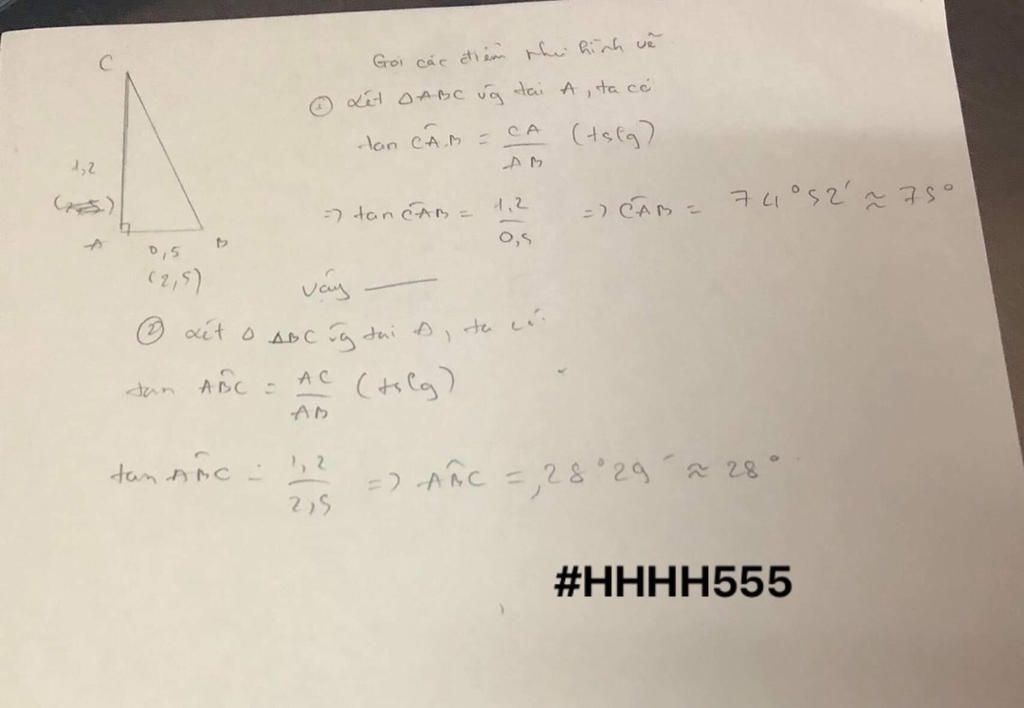 Gọi các điểm như hình vẽ
C
① xét ΔABC vg tại A, ta có
tan CÂB = CA/AB (tslg)
1,2
=> tan CÂB = 1,2/0,5 => CÂB = 74°52' ≈ 75°
A
B
0,5
(2,5)
Vậy
② xét Δ ABC vg tại A, ta có
tan AB̂C = AC/AB (tslg)
tan AB̂C = 1,2/2,5 => AB̂C = 28°29' ≈ 28°
#HHHH555